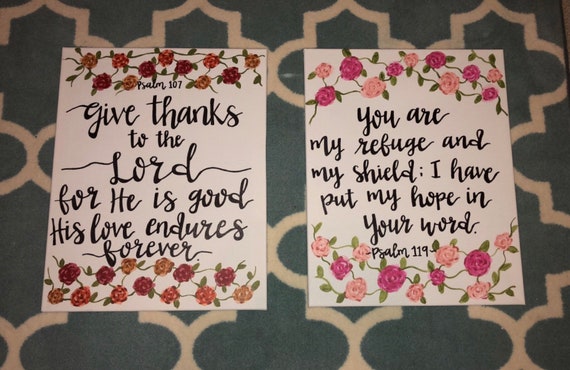 Psalm 107
Give thanks
to the
Lord
for He is good
His love endures
forever
You are
my refuge and
my shield; I have
put my hope in
Your word.
-Psalm 119-